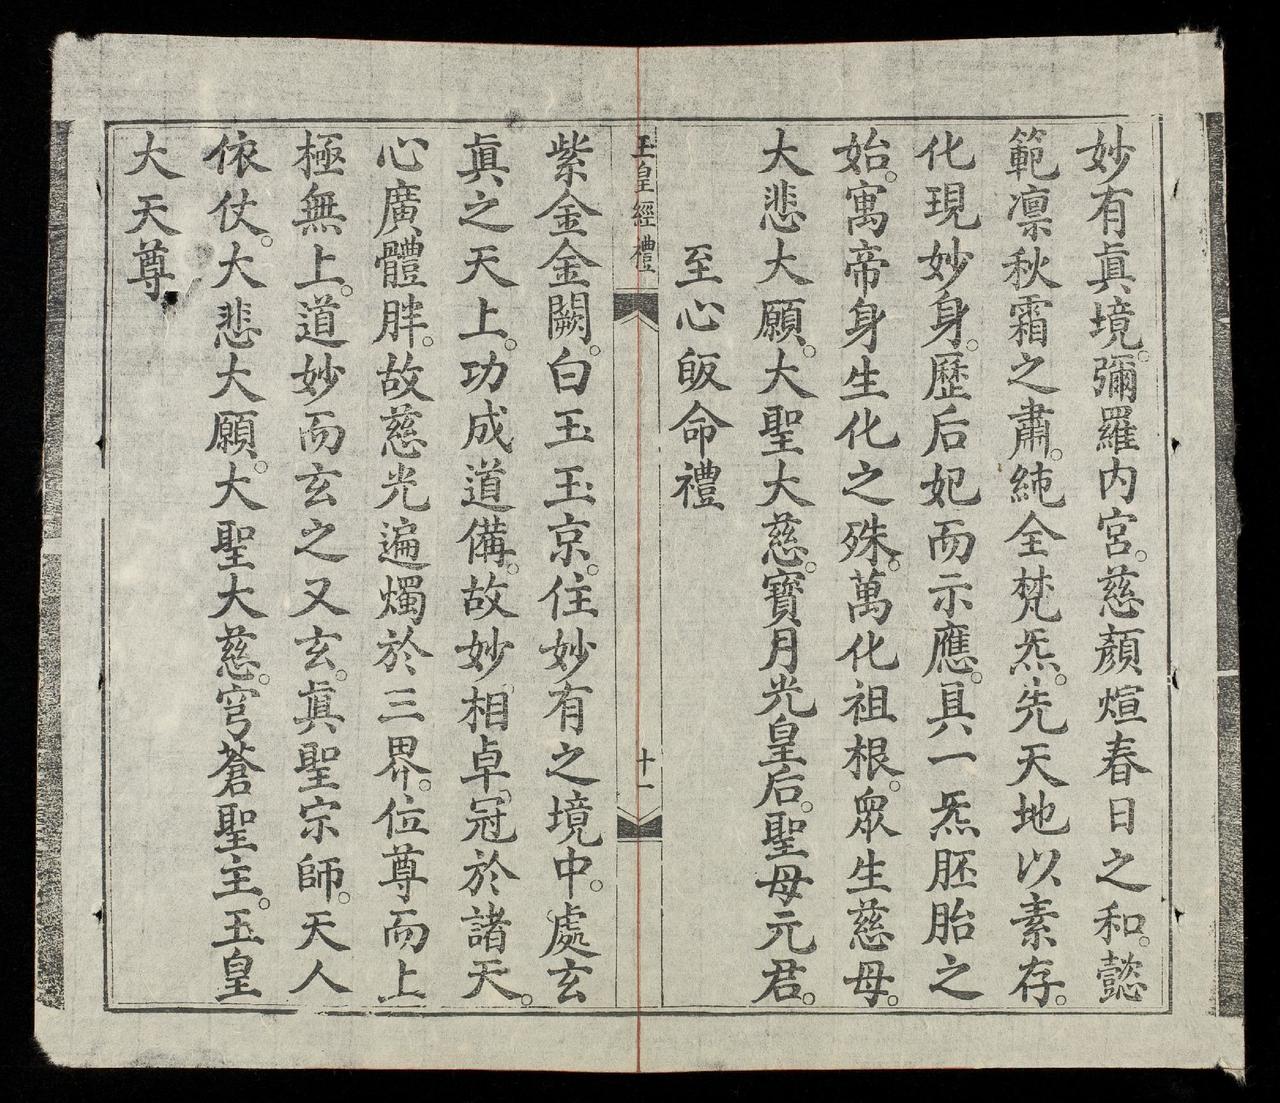 妙有眞境。彌羅内宮。慈顏煊春日之和。懿
範凛秋霜之肅。純全梵炁。先天地以素存。
化現妙身。歷后妃而示應。具一炁胚胎之
始。寓帝身生化之殊。萬化祖根。衆生慈母。
大悲大願。大聖大慈。寶月光皇后。聖母元君。
至心皈命禮
玉皇經禮
十一
紫金金闕。白玉玉京。住妙有之境中。處玄
眞之天上。功成道備。故妙相卓冠於諸天。
心廣體胖。故慈光遍燭於三界。位尊而上
極無上。道妙而玄之又玄。眞聖宗師。天人
依仗。大悲大願。大聖大慈。穹蒼聖主。玉皇
大天尊